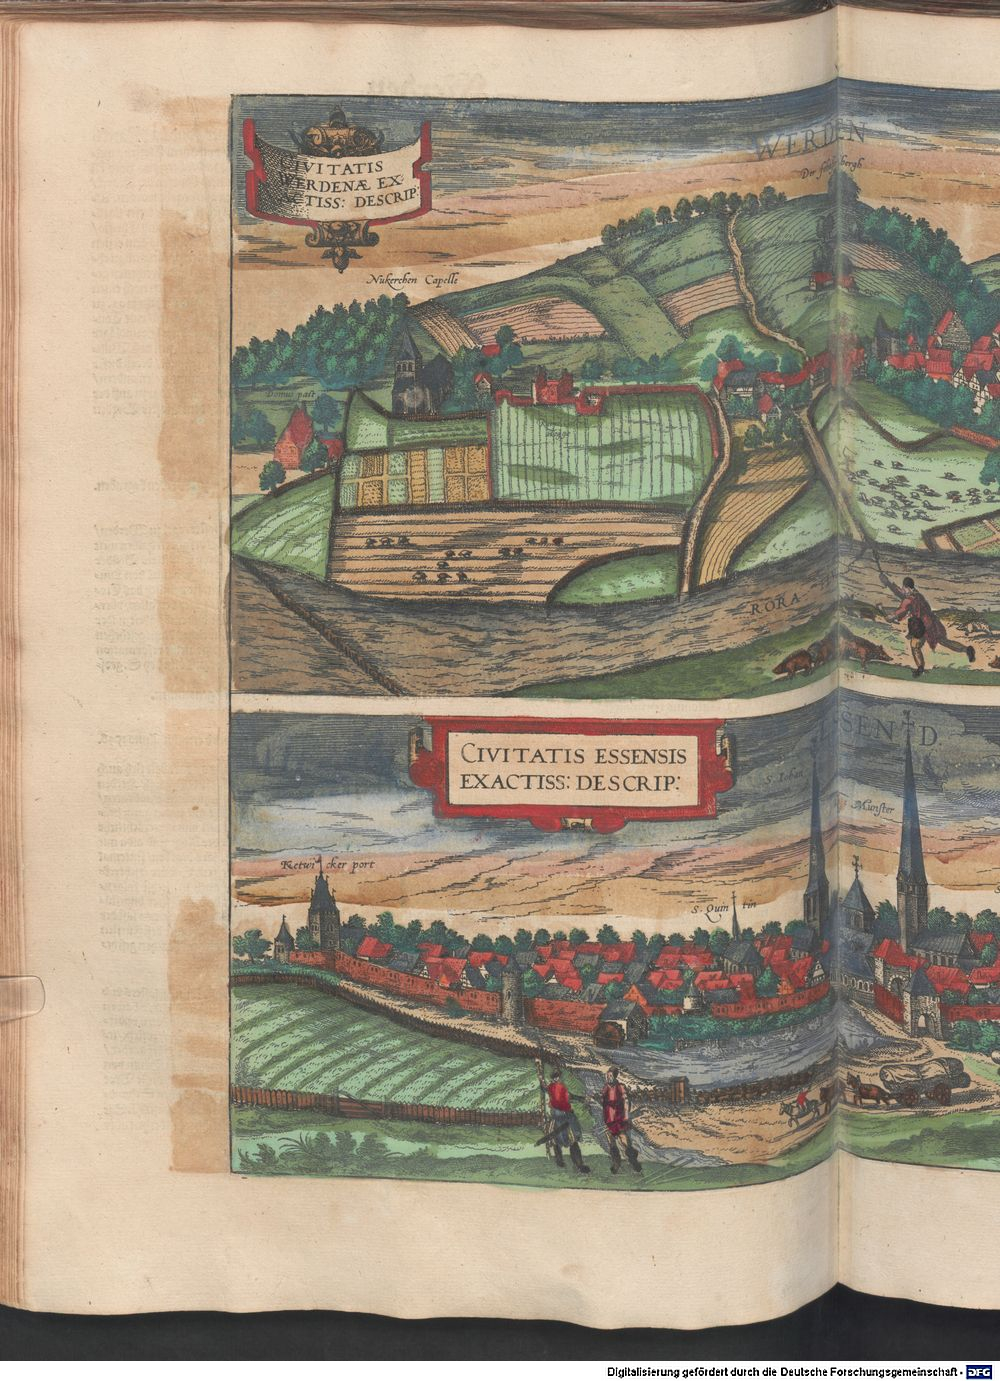 WERDEN
CIVITATIS
WERDENÆ EX
ACTISS: DESCRIP:
Nukerchen Capelle
Domus past
RORA
CIVITATIS ESSENSIS
EXACTISS: DESCRIP:
ESSEND.
S. Iohan
Munster
Ketwicker port
S. Quintin
Digitalisierung gefördert durch die Deutsche Forschungsgemeinschaft - DFG